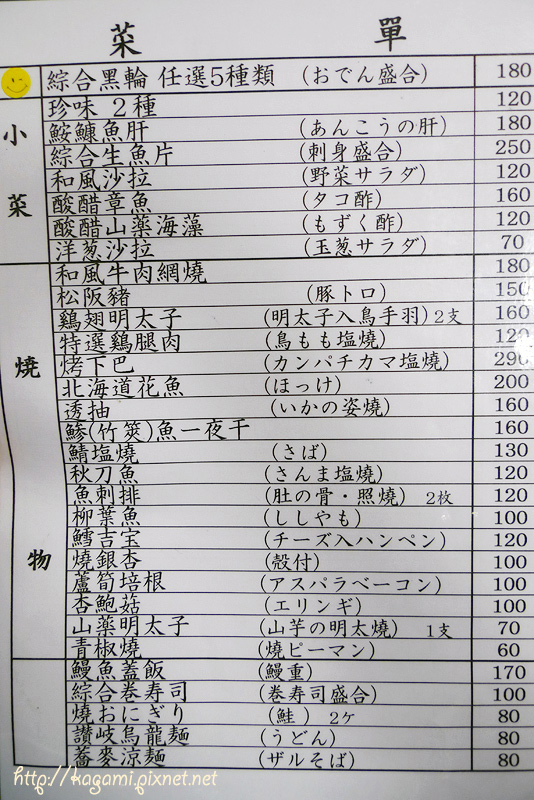 菜 單
綜合黑輪 任選5種類 (おでん盛合) 180
小菜
珍味 2種 120
鮟鱇魚肝 (あんこうの肝) 180
綜合生魚片 (刺身盛合) 250
和風沙拉 (野菜サラダ) 120
酸醋章魚 (タコ酢) 160
酸醋山藥海藻 (もずく酢) 120
洋葱沙拉 (玉葱サラダ) 70
燒物
和風牛肉網燒 180
松阪豬 (豚トロ) 150
鷄翅明太子 (明太子入鳥手羽) 2支 160
特選鷄腿肉 (鳥もも塩燒) 120
烤下巴 (カンパチカマ塩燒) 290
北海道花魚 (ほっけ) 200
透抽 (いかの姿燒) 160
鯵(竹筴)魚一夜干 160
鯖塩燒 (さば) 130
秋刀魚 (さんま塩燒) 120
魚刺排 (肚の骨・照燒) 2枚 120
柳葉魚 (ししゃも) 100
鱈吉宝 (チーズ入ハンペン) 120
燒銀杏 (殼付) 100
蘆筍培根 (アスパラベーコン) 100
杏鮑菇 (エリンギ) 100
山薬明太子 (山芋の明太燒) 1支 70
青椒燒 (燒ピーマン) 60
鰻魚蓋飯 (鰻重) 170
綜合巻寿司 (巻寿司盛合) 100
燒おにぎり (鮭) 2ケ 80
讃岐烏龍麵 (うどん) 80
蕎麥涼麵 (ザルそば) 80
http://kagami.pixnet.net